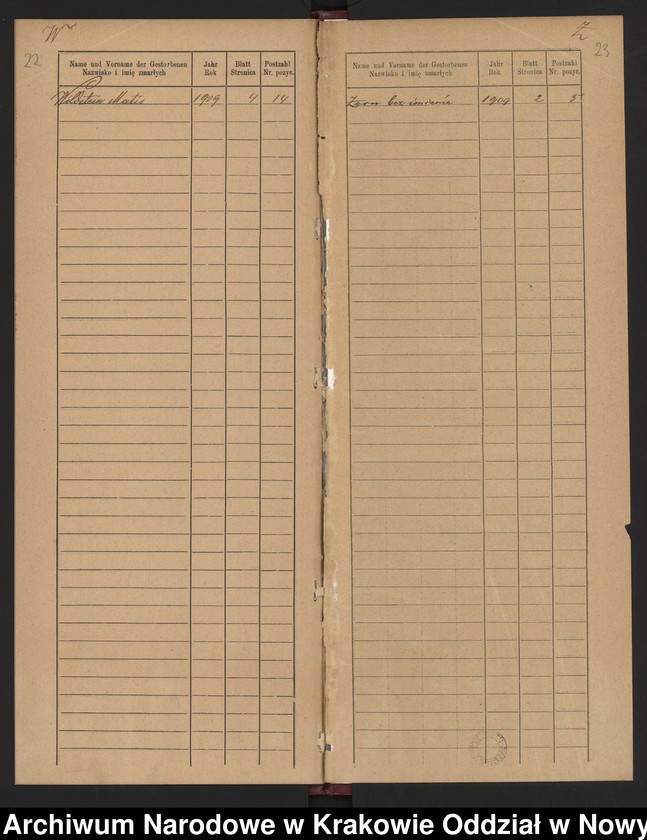 W
22
Name und Vorname der Gestorbenen
Nazwisko i imię zmarłych
Jahr
Rok
Blatt
Stronica
Postzahl
Nr. pozyc.
Wildstein Matis 1909 4 14
Z
23
Name und Vorname der Gestorbenen
Nazwisko i imię zmarłych
Jahr
Rok
Blatt
Stronica
Postzahl
Nr. pozyc.
Zorn bez imienia 1909 2 5
Archiwum Narodowe w Krakowie Oddział w Nowy